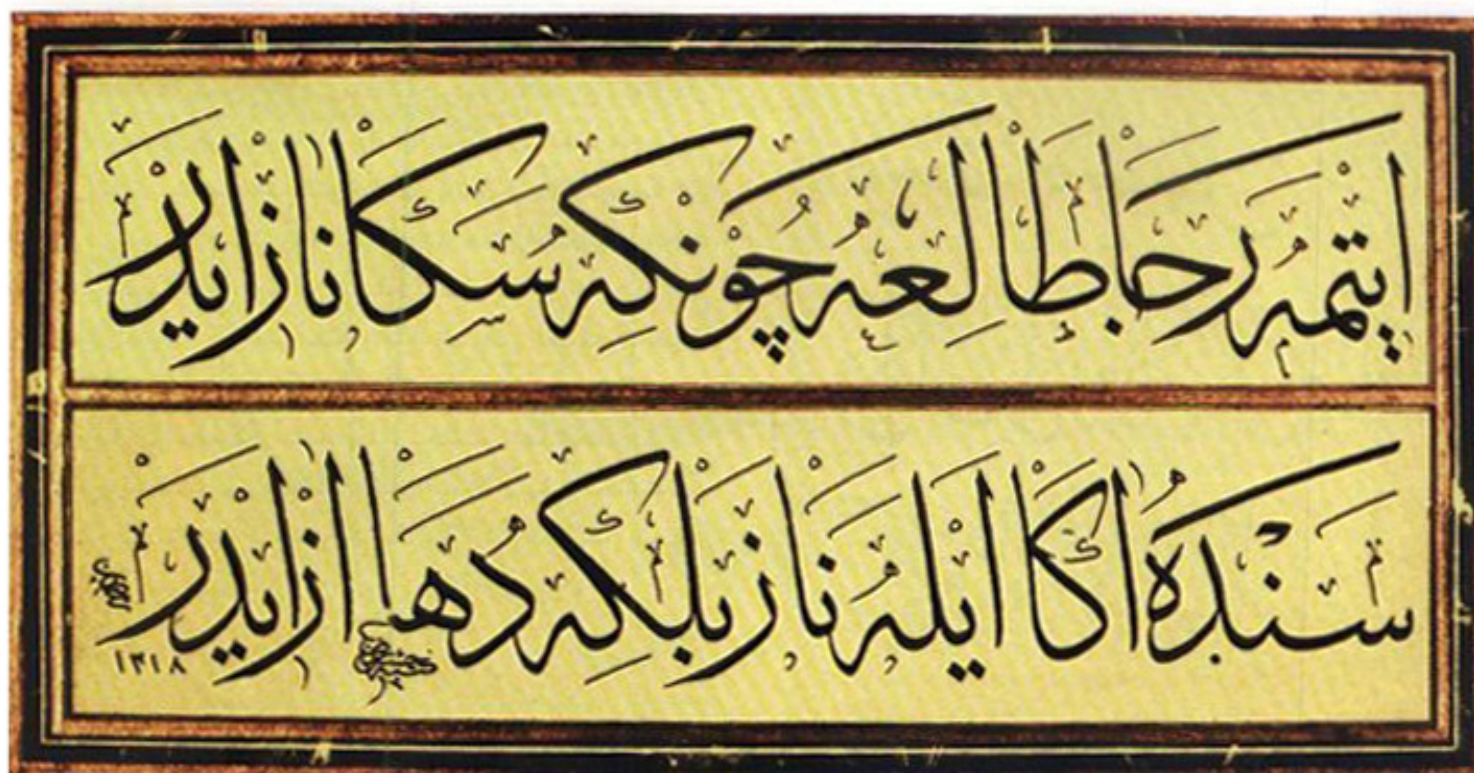 ایتمه رجا طالعه چونکه سكا ناز ایدر
سنده اكا ایله ناز بلکه دها از ایدر
١٣١٨